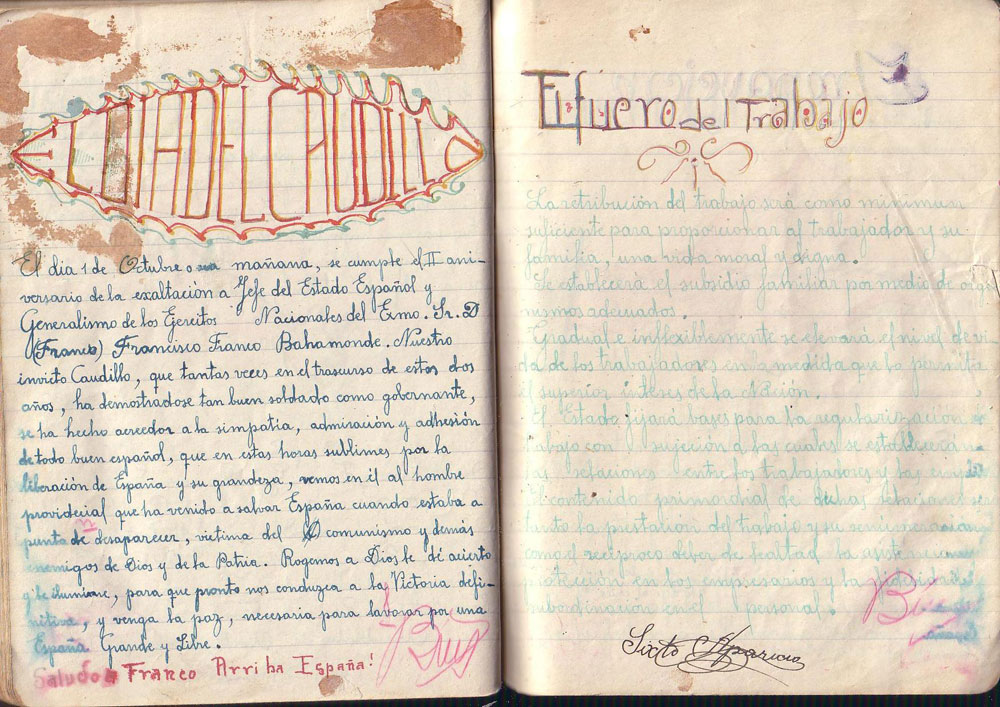 EL DIA DEL CAUDILLO
El dia 1 de Octubre o sea mañana, se cumple el II ani-
versario de la exaltación a Jefe del Estado Español y
Generalismo de los Ejercitos Nacionales del Exmo. Sr. D
(Franco) Francisco Franco Bahamonde. Nuestro
invicto Caudillo, que tantas veces en el trascurso de estos dos
años, ha demostradose tan buen soldado como gobernante,
se ha hecho acreedor a la simpatia, admiración y adhesión
de todo buen español, que en estas horas sublimes por la
liberación de España y su grandeza, vemos en él al hombre
providecial que ha venido a salvar España cuando estaba a
punto de desaparecer, victima del comunismo y demás
enemigos de Dios y de la Patria. Rogemos a Dios le dé acierto
y le ilumine, para que pronto nos conduzca a la Victoria defi-
nitiva, y venga la paz, necesaria para lavorar por una
España Grande y Libre.
Saludo a Franco Arriba España!
Bien
El fuero del Trabajo
La retribución del trabajo será como minimum
suficiente para proporcionar al trabajador y su
familia, una vida moral y digna.
Se establecerá el subsidio familiar por medio de orga-
nismos adecuados.
Gradual e inflexiblemente se elevará el nivel de vi-
da de los trabajadores en la medida que lo permita
el superior interes de la Nación.
El Estado fijará bases para la regularización
trabajo con sujeción a las cuales se establecerán
las relaciones entre los trabajadores y las
El contenido primordial de dichas relaciones será
tanto la prestación del trabajo y su remuneración
como el reciproco deber de lealtad la asistencia
protección en los empresarios y la fidelidad
subordinación en el personal.
Bien
Sixto Aparicio